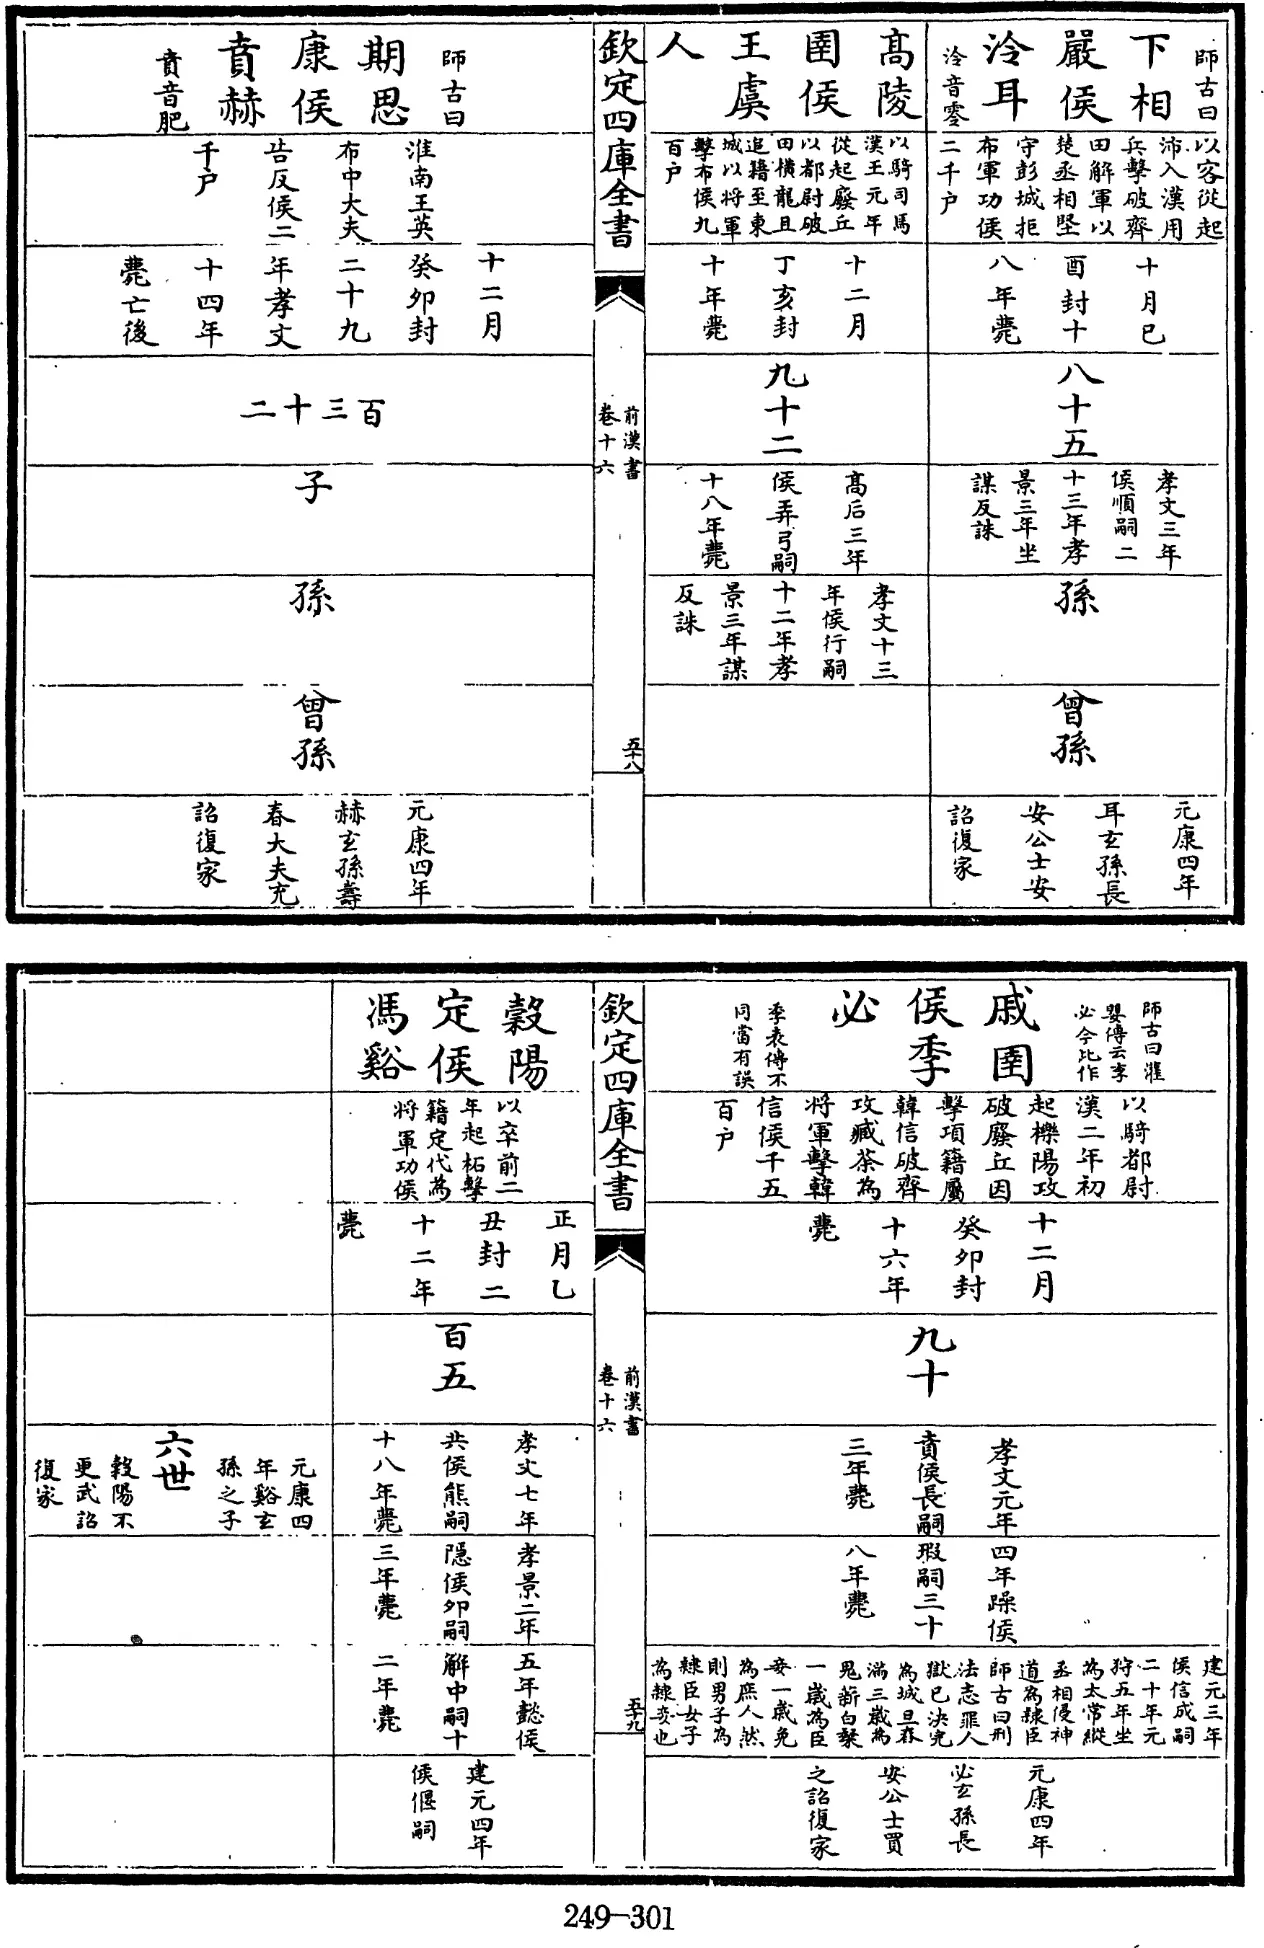 下相
嚴侯
泠耳
師古曰
泠音零
以客從起
沛入漢用
兵擊破齊
田解軍以
楚丞相堅
守彭城拒
布軍功侯
二千户
十月巳
酉封十
八年薨
八十五
孝文三年
侯順嗣二
十三年孝
景三年坐
謀反誅
孫
曾孫
元康四年
耳玄孫長
安公士安
詔復家
高陵
圉侯
王虞
人
以騎司馬
漢王元年
從起廢丘
以都尉破
田橫龍且
追籍至東
城以将軍
擊布侯九
百户
十二月
丁亥封
十年薨
九十二
高后三年
侯弄弓嗣
十八年薨
孝文十三
年侯行嗣
十二年孝
景三年謀
反誅
欽定四庫全書
前漢書
卷十六
五十八
師古曰
賁音肥
期思
康侯
賁赫
淮南王英
布中大夫
告反侯二
千户
十二月
癸卯封
二十九
年孝文
十四年
薨亡後
百三十二
子
孫
曾孫
元康四年
赫玄孫壽
春大夫充
詔復家
戚圉
侯季
必
師古曰灌
嬰傳云李
必今此作
季表傳不
同當有誤
以騎都尉
漢二年初
起櫟陽攻
破廢丘因
擊項籍屬
韓信破齊
攻臧荼為
将軍擊韓
信侯千五
百户
十二月
癸卯封
十六年
薨
九十
孝文元年
賁侯長嗣
三年薨
四年躁侯
瑕嗣三十
八年薨
建元三年
侯信成嗣
二十年元
狩五年坐
為太常縱
丞相侵神
道為隸臣
師古曰刑
法志罪人
獄已決完
為城旦舂
滿三歲為
鬼薪白粲
一歲為臣
妾一歲免
為庶人然
則男子為
隸臣女子
為隸妾也
元康四年
必玄孫長
安公士買
之詔復家
欽定四庫全書
前漢書
卷十六
五十九
穀陽
定侯
馮谿
以卒前二
年起柘擊
籍定代為
将軍功侯
正月乙
丑封二
十二年
薨
百五
孝文七年
共侯熊嗣
十八年薨
孝景二年
隱侯卯嗣
三年薨
五年懿侯
解中嗣十
二年薨
建元四年
侯偃嗣
六世
元康四
年谿玄
孫之子
穀陽不
更武詔
復家
249-301